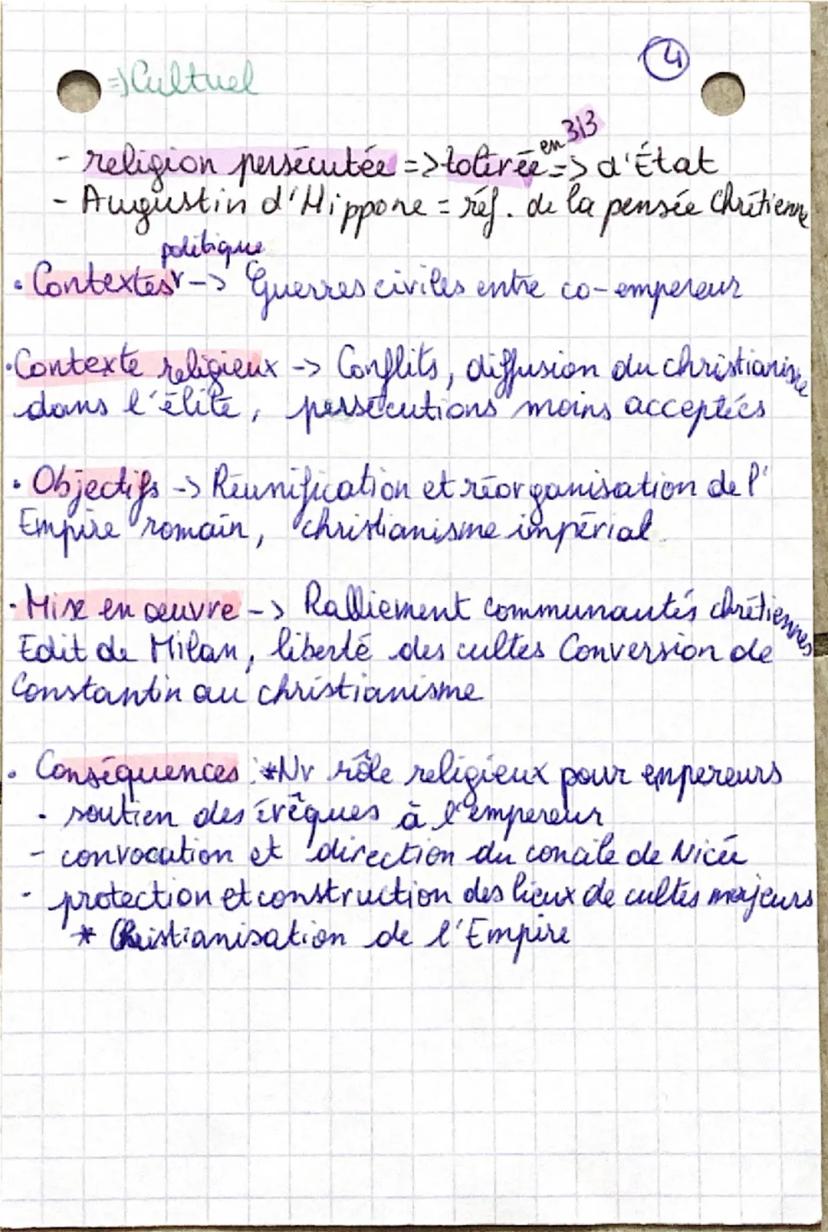 4
=> Cultuel
- religion persécutée => tolérée en 313 => d'État
- Augustin d'Hippone = réf. de la pensée Chrétienne
• Contextes politique -> Guerres civiles entre co-empereur
• Contexte religieux -> Conflits, diffusion du christianisme
dans l'élite, persécutions moins acceptées
• Objectifs -> Réunification et réorganisation de l'
Empire romain, christianisme impérial
• Mise en œuvre -> Ralliement communautés chrétiennes
Edit de Milan, liberté des cultes Conversion de
Constantin au christianisme
• Conséquences : *Nv rôle religieux pour empereurs
- soutien des évêques à l'empereur
- convocation et direction du concile de Nicée
- protection et construction des lieux de cultes majeurs
* Christianisation de l'Empire